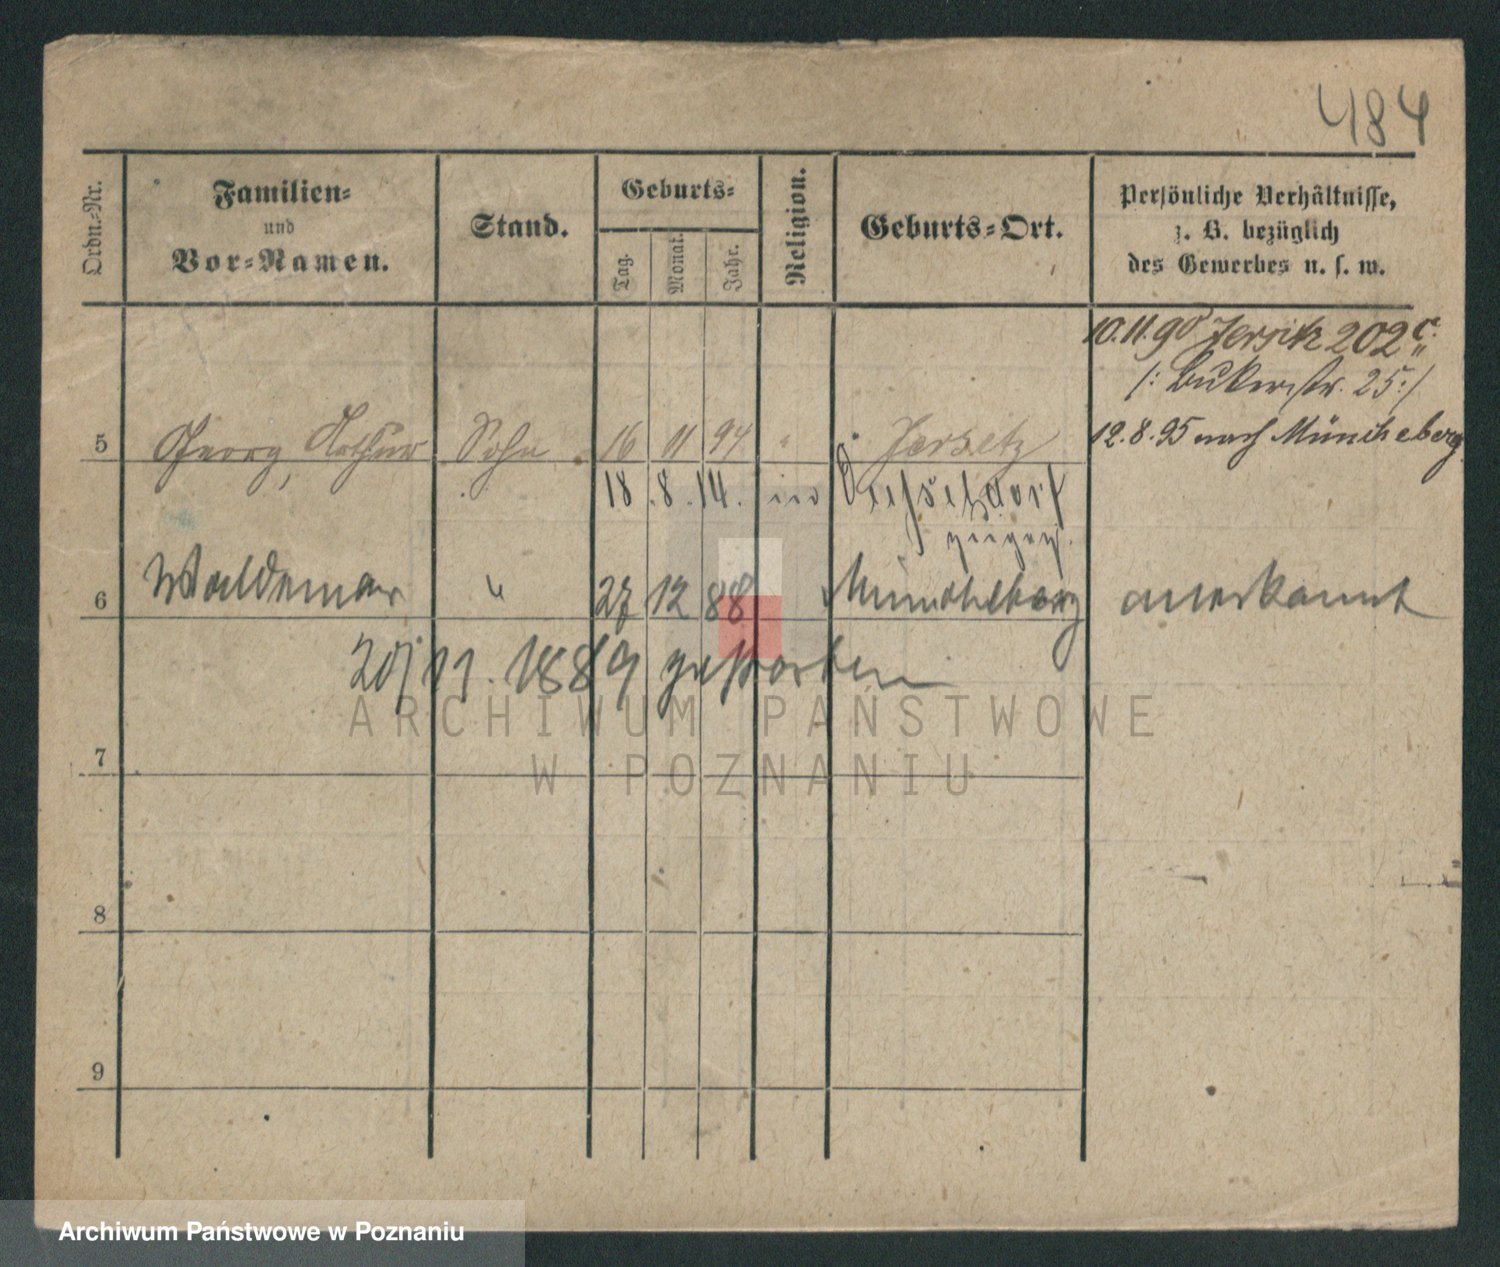 484
Ordn.-Nr.
Familien-
und
Vor-Namen.
Stand.
Geburts-
Tag.
Monat.
Jahr.
Religion.
Geburts-Ort.
Persönliche Verhältnisse,
z. B. bezüglich
des Gewerbes u. s. w.
10.11.90 Jersitz 202 c.
/: Bukerstr. 25 :/
12.8.95 nach Müncheberg
5 Georg, Arthur Sohn 16 11 94 " Jersitz
18. 8. 14. in
6 Waldemar " 27 12 88 Müncheberg anerkannt
20/11. 1889 gestorben
ARCHIWUM PAŃSTWOWE
W POZNANIU
7
8
9
Archiwum Państwowe w Poznaniu